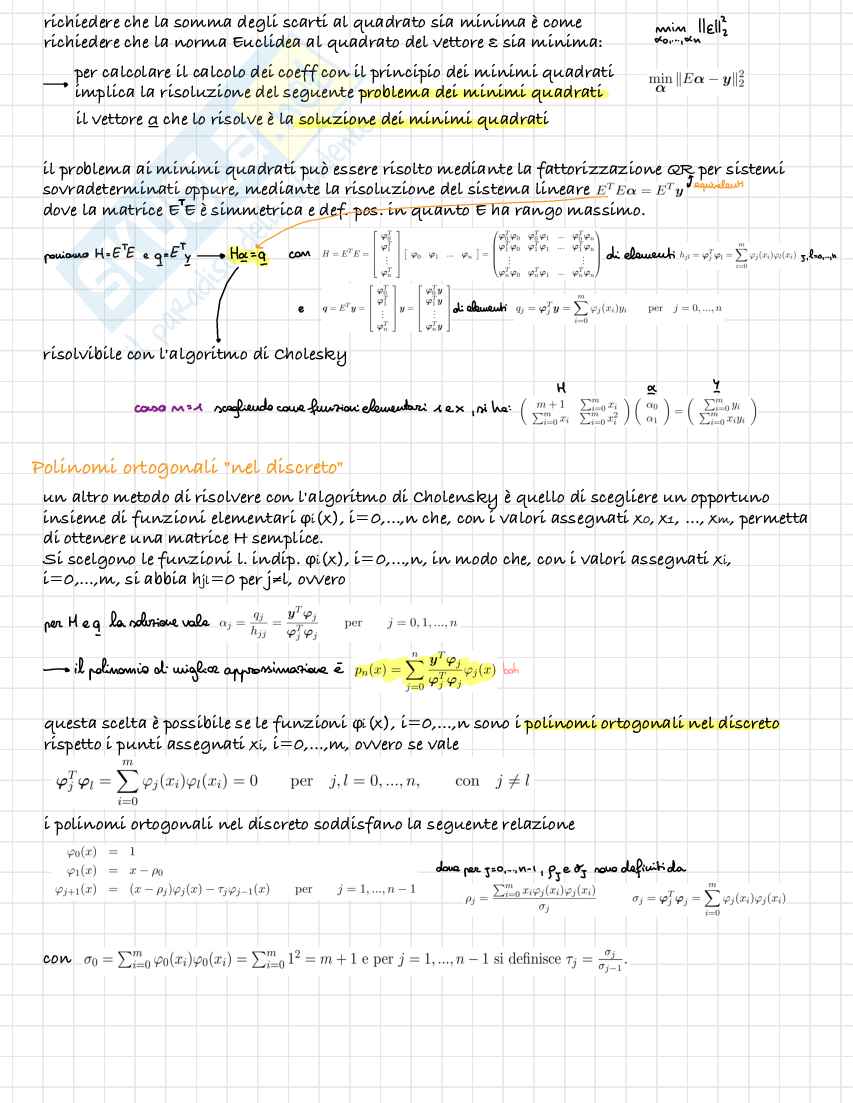 richiedere che la somma degli scarti al quadrato sia minima è come
richiedere che la norma Euclidea al quadrato del vettore ε sia minima:
min ||ε||₂²
α₀,...,αₙ
→ per calcolare il calcolo dei coeff con il principio dei minimi quadrati
implica la risoluzione del seguente problema dei minimi quadrati
min ‖Eα − y‖₂²
α
il vettore α che lo risolve è la soluzione dei minimi quadrati
il problema ai minimi quadrati può essere risolto mediante la fattorizzazione QR per sistemi
sovradeterminati oppure, mediante la risoluzione del sistema lineare EᵀEα = Eᵀy equivalenti
dove la matrice EᵀE è simmetrica e def. pos. in quanto E ha rango massimo.
poniamo H=EᵀE e q=Eᵀy → Hα=q con H = EᵀE = [φ₀ᵀ φ₁ᵀ ⋮ φₙᵀ] [φ₀ φ₁ ... φₙ] = (φ₀ᵀφ₀ φ₀ᵀφ₁ ... φ₀ᵀφₙ φ₁ᵀφ₀ φ₁ᵀφ₁ ... φ₁ᵀφₙ ⋮ ⋮ φₙᵀφ₀ φₙᵀφ₁ ... φₙᵀφₙ) di elementi hⱼₗ = φⱼᵀφₗ = ∑ᵢ₌₀ᵐ φⱼ(xᵢ)φₗ(xᵢ) j,l=0,..,n
e q = Eᵀy = [φ₀ᵀ φ₁ᵀ ⋮ φₙᵀ] y = [φ₀ᵀy φ₁ᵀy ⋮ φₙᵀy] di elementi qⱼ = φⱼᵀy = ∑ᵢ₌₀ᵐ φⱼ(xᵢ)yᵢ per j = 0,...,n
risolvibile con l'algoritmo di Cholesky
H α y
caso n=1 scegliendo come funzioni elementari 1 e x, si ha: (m + 1 ∑ᵢ₌₀ᵐ xᵢ ∑ᵢ₌₀ᵐ xᵢ ∑ᵢ₌₀ᵐ xᵢ²) (α₀ α₁) = (∑ᵢ₌₀ᵐ yᵢ ∑ᵢ₌₀ᵐ xᵢyᵢ)
Polinomi ortogonali "nel discreto"
un altro metodo di risolvere con l'algoritmo di Cholensky è quello di scegliere un opportuno
insieme di funzioni elementari φi(x), i=0,...,n che, con i valori assegnati x0, x1, ..., xm, permetta
di ottenere una matrice H semplice.
Si scelgono le funzioni l. indip. φi(x), i=0,...,n, in modo che, con i valori assegnati xi,
i=0,...,m, si abbia hjl=0 per j≠l, ovvero
per H e q la soluzione vale αⱼ = qⱼ/hⱼⱼ = yᵀφⱼ/φⱼᵀφⱼ per j = 0, 1, ..., n
→ il polinomio di miglior approssimazione è pₙ(x) = ∑ⱼ₌₀ⁿ yᵀφⱼ/φⱼᵀφⱼ φⱼ(x) boh
questa scelta è possibile se le funzioni φi(x), i=0,...,n sono i polinomi ortogonali nel discreto
rispetto i punti assegnati xi, i=0,...,m, ovvero se vale
φⱼᵀφₗ = ∑ᵢ₌₀ᵐ φⱼ(xᵢ)φₗ(xᵢ) = 0 per j, l = 0, ..., n, con j ≠ l
i polinomi ortogonali nel discreto soddisfano la seguente relazione
φ₀(x) = 1
φ₁(x) = x − ρ₀
φⱼ₊₁(x) = (x − ρⱼ)φⱼ(x) − τⱼφⱼ₋₁(x) per j = 1, ..., n − 1
dove per j=0,..,n-1, ρj e σj sono definiti da
ρⱼ = ∑ᵢ₌₀ᵐ xᵢφⱼ(xᵢ)φⱼ(xᵢ)/σⱼ σⱼ = φⱼᵀφⱼ = ∑ᵢ₌₀ᵐ φⱼ(xᵢ)φⱼ(xᵢ)
con σ₀ = ∑ᵢ₌₀ᵐ φ₀(xᵢ)φ₀(xᵢ) = ∑ᵢ₌₀ᵐ 1² = m + 1 e per j = 1, ..., n − 1 si definisce τⱼ = σⱼ/σⱼ₋₁.